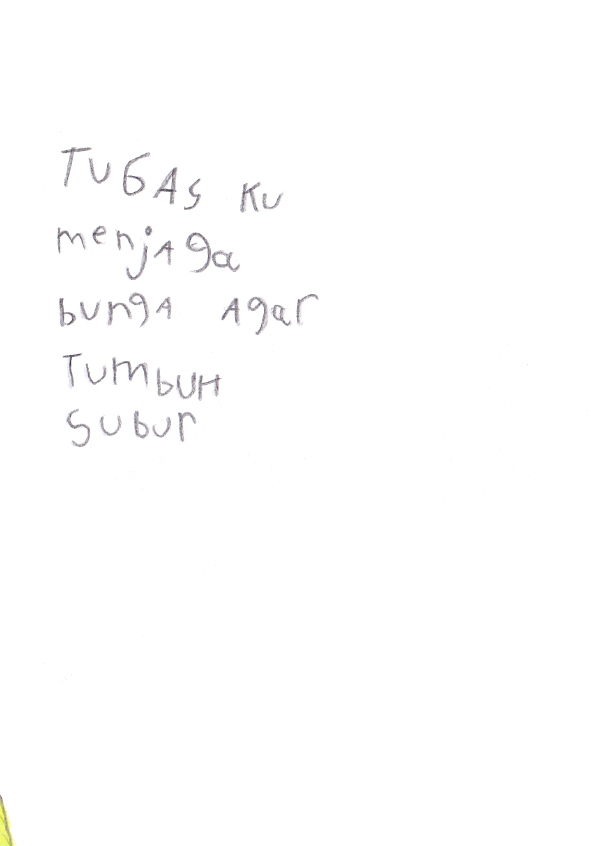 TUGAS KU
menjAga
bungA Agar
TumbuH
Subur